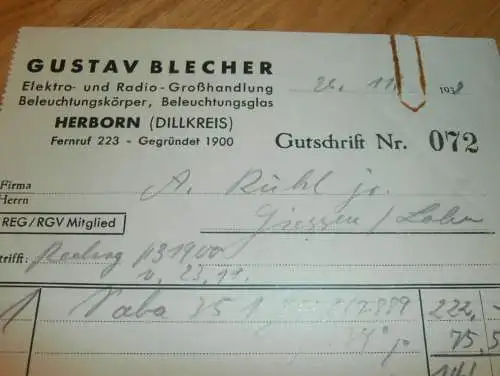 GUSTAV BLECHER
Elektro- und Radio-Großhandlung
Beleuchtungskörper, Beleuchtungsglas
HERBORN (DILLKREIS)
Fernruf 223 – Gegründet 1900
26. 11. 1938
Gutschrift Nr. 072
Firma
Herrn
A. Rühl jr.
Giessen / Lahn
REG/RGV Mitglied
trifft:
v. 23.11.
1 Naba 35 1 222,
75,5